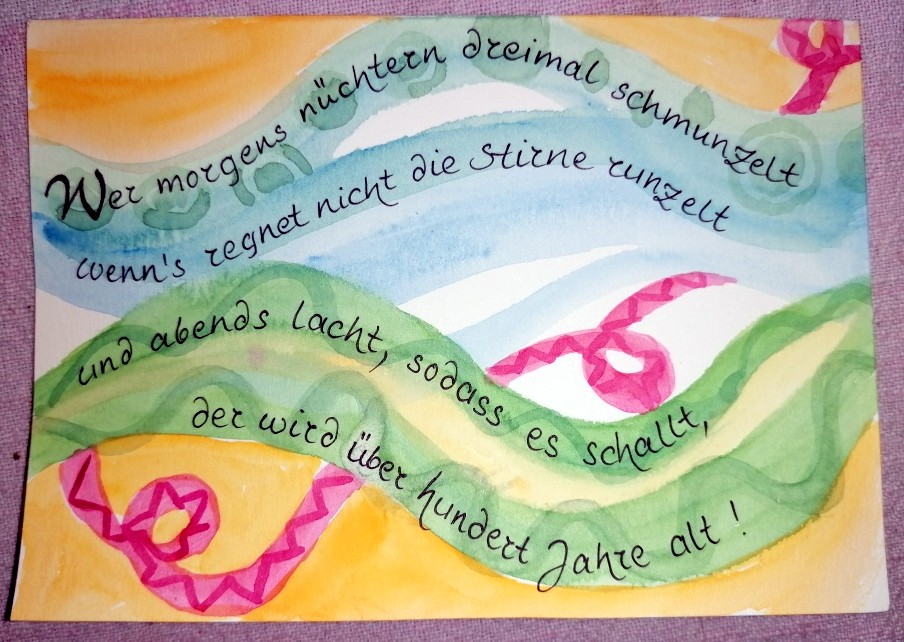 Wer morgens nüchtern dreimal schmunzelt
wenn's regnet nicht die Stirne runzelt
und abends lacht, sodass es schallt,
der wird über hundert Jahre alt!